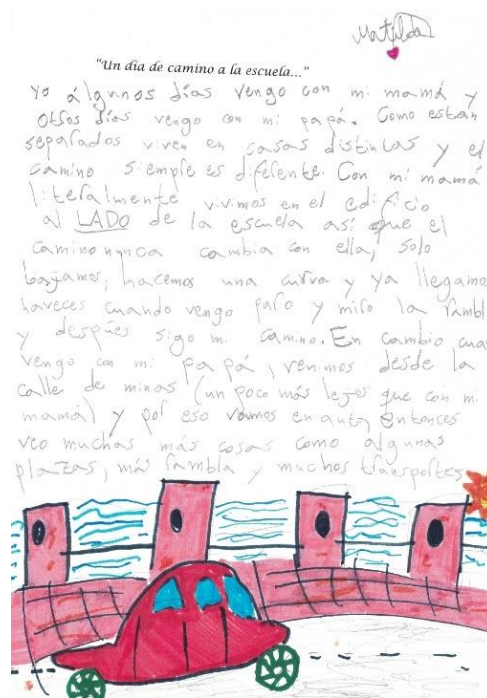 Matilda
“Un día de camino a la escuela...”
Yo álgunos días vengo con mi mamá y
otros días vengo con mi papá. Como están
separados viven en casas distintas y el
camino siempre es diferente. Con mi mamá
literalmente vivimos en el edificio
al LADO de la escuela así que el
camino nunca cambia con ella, solo
bajamos, hacemos una curva y ya llegamo
haveces cuando vengo paro y miro la rambl
y despúes sigo mi camino. En cambio cua
vengo con mi papá, venimos desde la
calle de minas (un poco más lejos que con mi
mamá) y por eso vamos en auto, entonces
veo muchas más cosas como algunas
plazas, más rambla y muchos transportes